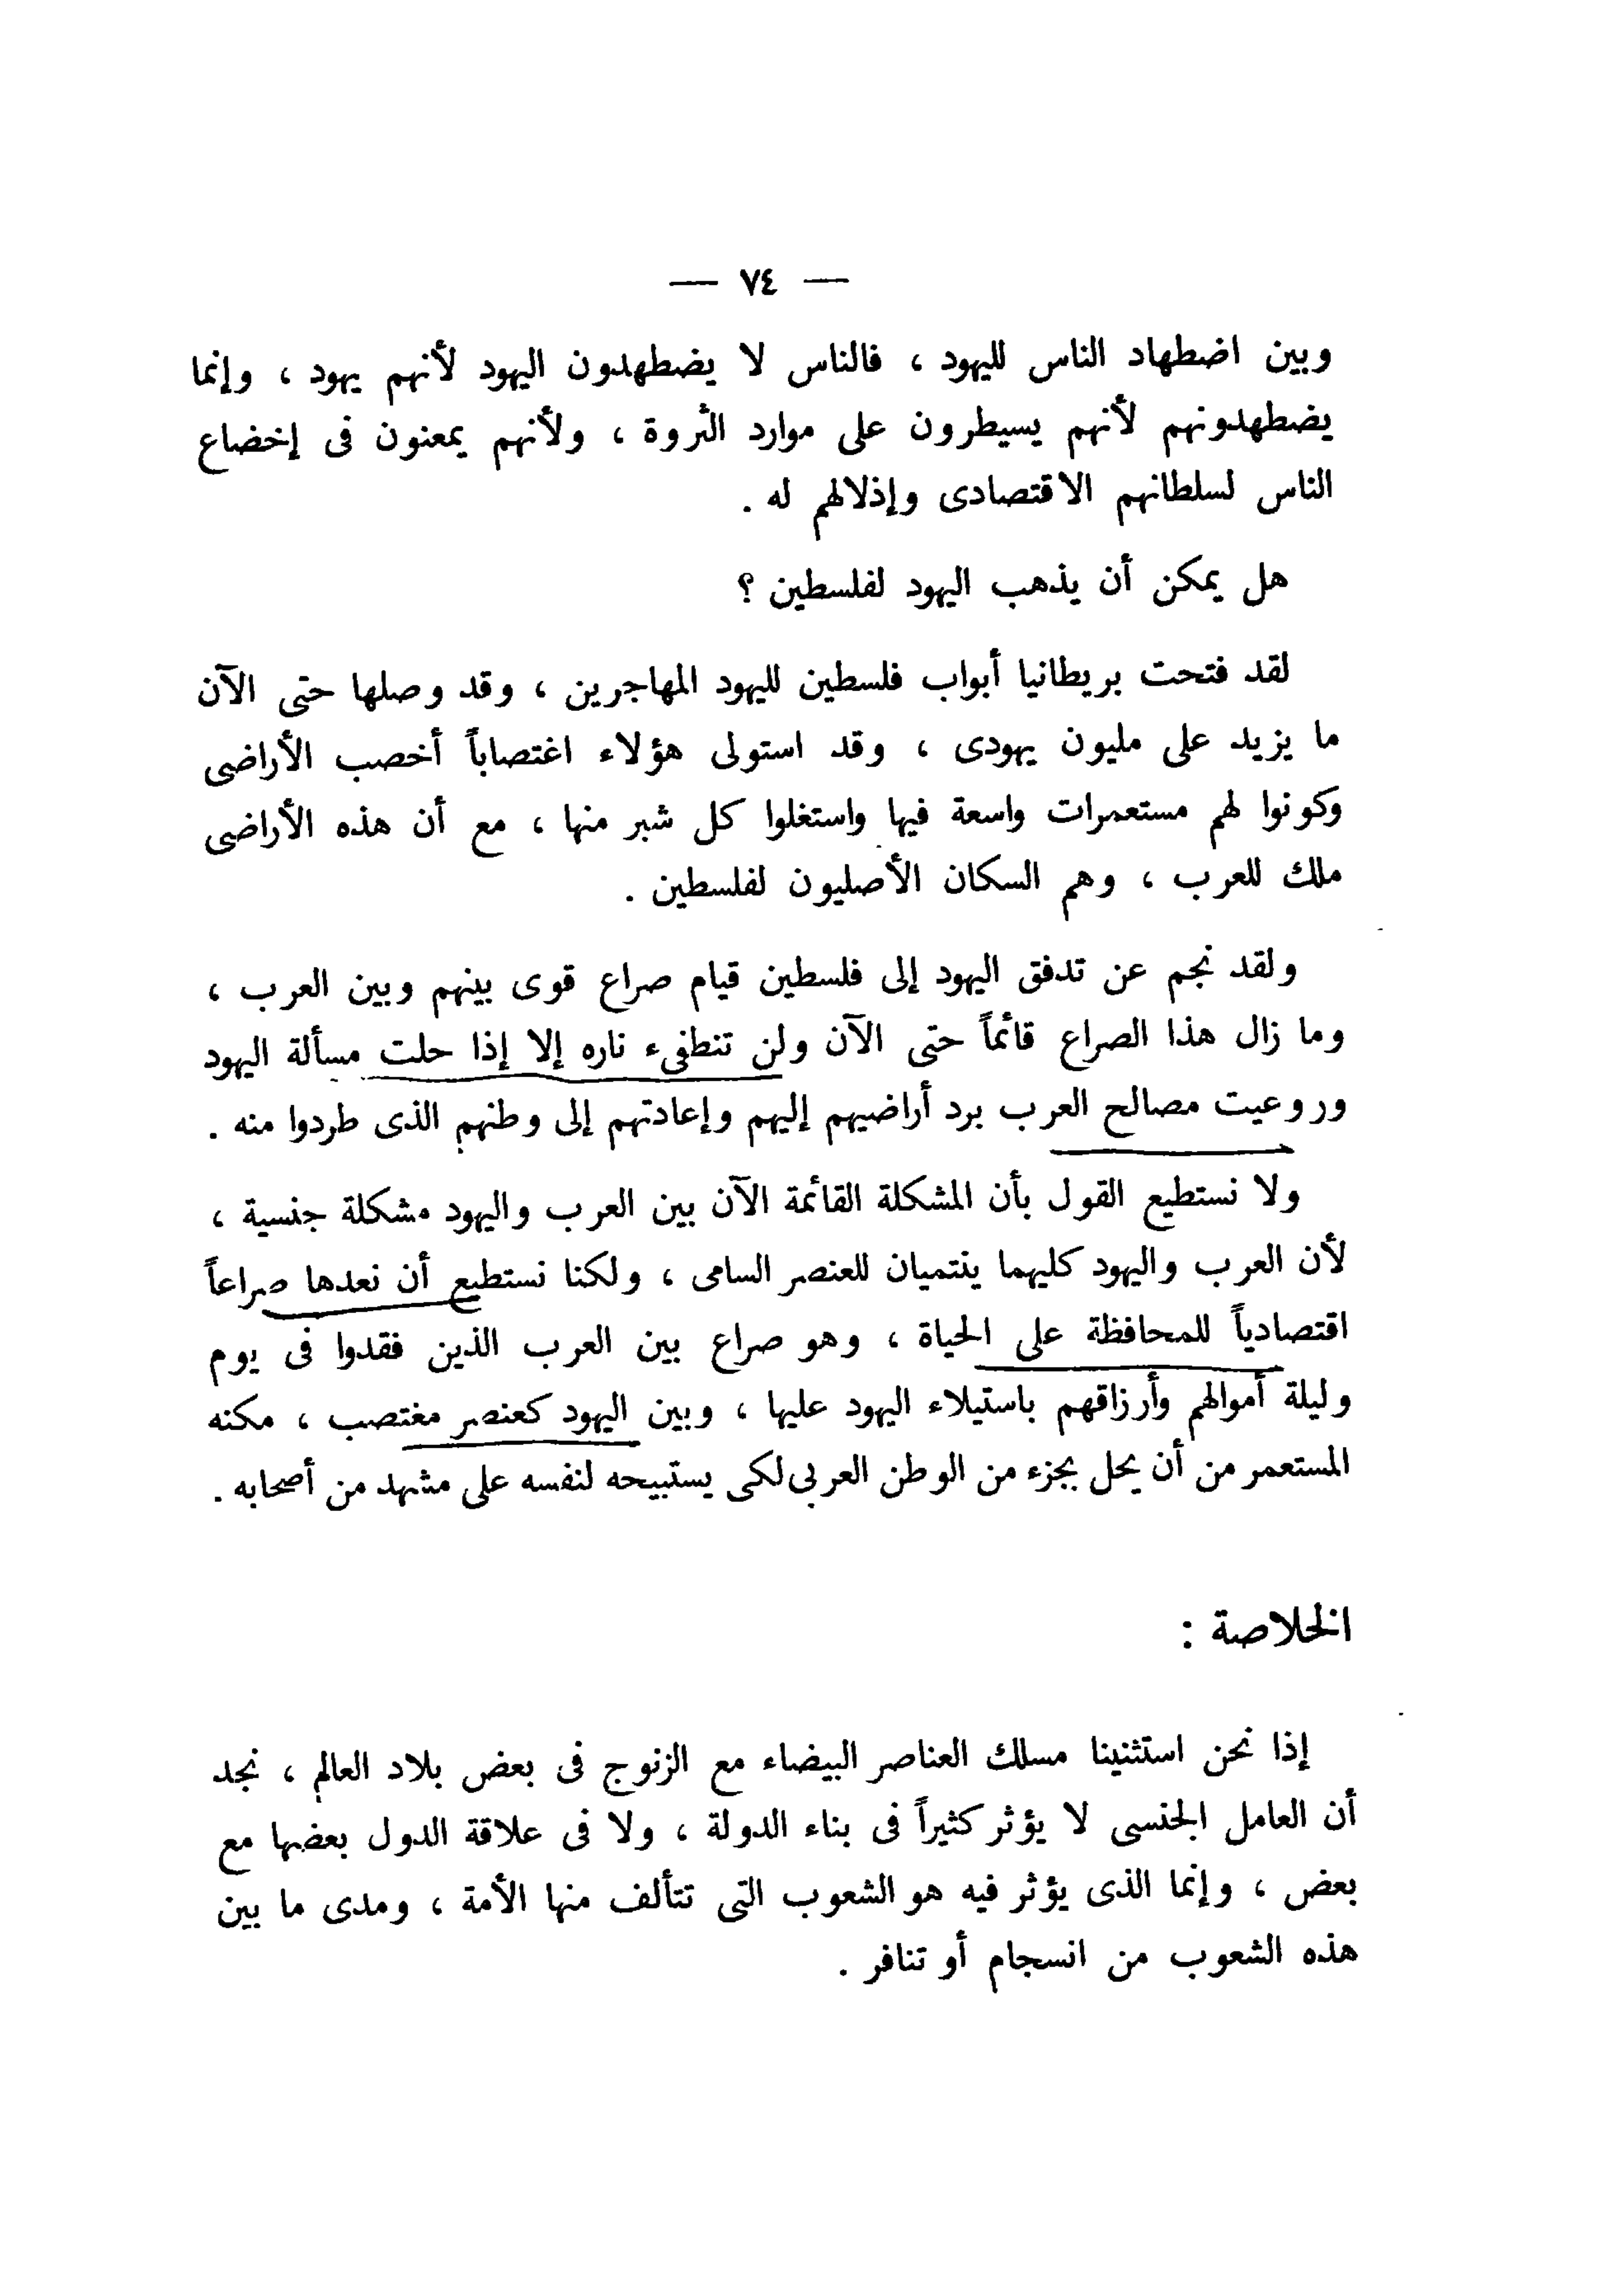 — ٧٤ —
وبين اضطهاد الناس لليهود ، فالناس لا يضطهدون اليهود لأنهم يهود ، وإنما
يضطهدونهم لأنهم يسيطرون على موارد الثروة ، ولأنهم يمعنون فى إخضاع
الناس لسلطانهم الاقتصادى وإذلالهم له .
هل يمكن أن يذهب اليهود لفلسطين ؟
لقد فتحت بريطانيا أبواب فلسطين لليهود المهاجرين ، وقد وصلها حتى الآن
ما يزيد على مليون يهودى ، وقد استولى هؤلاء اغتصاباً أخصب الأراضى
وكونوا لهم مستعمرات واسعة فيها واستغلوا كل شبر منها ، مع أن هذه الأراضى
ملك للعرب ، وهم السكان الأصليون لفلسطين .
ولقد نجم عن تدفق اليهود إلى فلسطين قيام صراع قوى بينهم وبين العرب ،
وما زال هذا الصراع قائماً حتى الآن ولن تنطفىء ناره إلا إذا حلت مسألة اليهود
وروعيت مصالح العرب برد أراضيهم إليهم وإعادتهم إلى وطنهم الذى طردوا منه .
ولا نستطيع القول بأن المشكلة القائمة الآن بين العرب واليهود مشكلة جنسية ،
لأن العرب واليهود كليهما ينتميان للعنصر السامى ، ولكنا نستطيع أن نعدها صراعاً
اقتصادياً للمحافظة على الحياة ، وهو صراع بين العرب الذين فقدوا فى يوم
وليلة أموالهم وأرزاقهم باستيلاء اليهود عليها ، وبين اليهود كعنصر مغتصب ، مكنه
المستعمر من أن يحل بجزء من الوطن العربى لكى يستبيحه لنفسه على مشهد من أصحابه .
الخلاصة :
إذا نحن استثنينا مسلك العناصر البيضاء مع الزنوج فى بعض بلاد العالم ، نجد
أن العامل الجنسى لا يؤثر كثيراً فى بناء الدولة ، ولا فى علاقة الدول بعضها مع
بعض ، وإنما الذى يؤثر فيه هو الشعوب التى تتألف منها الأمة ، ومدى ما بين
هذه الشعوب من انسجام أو تنافر .